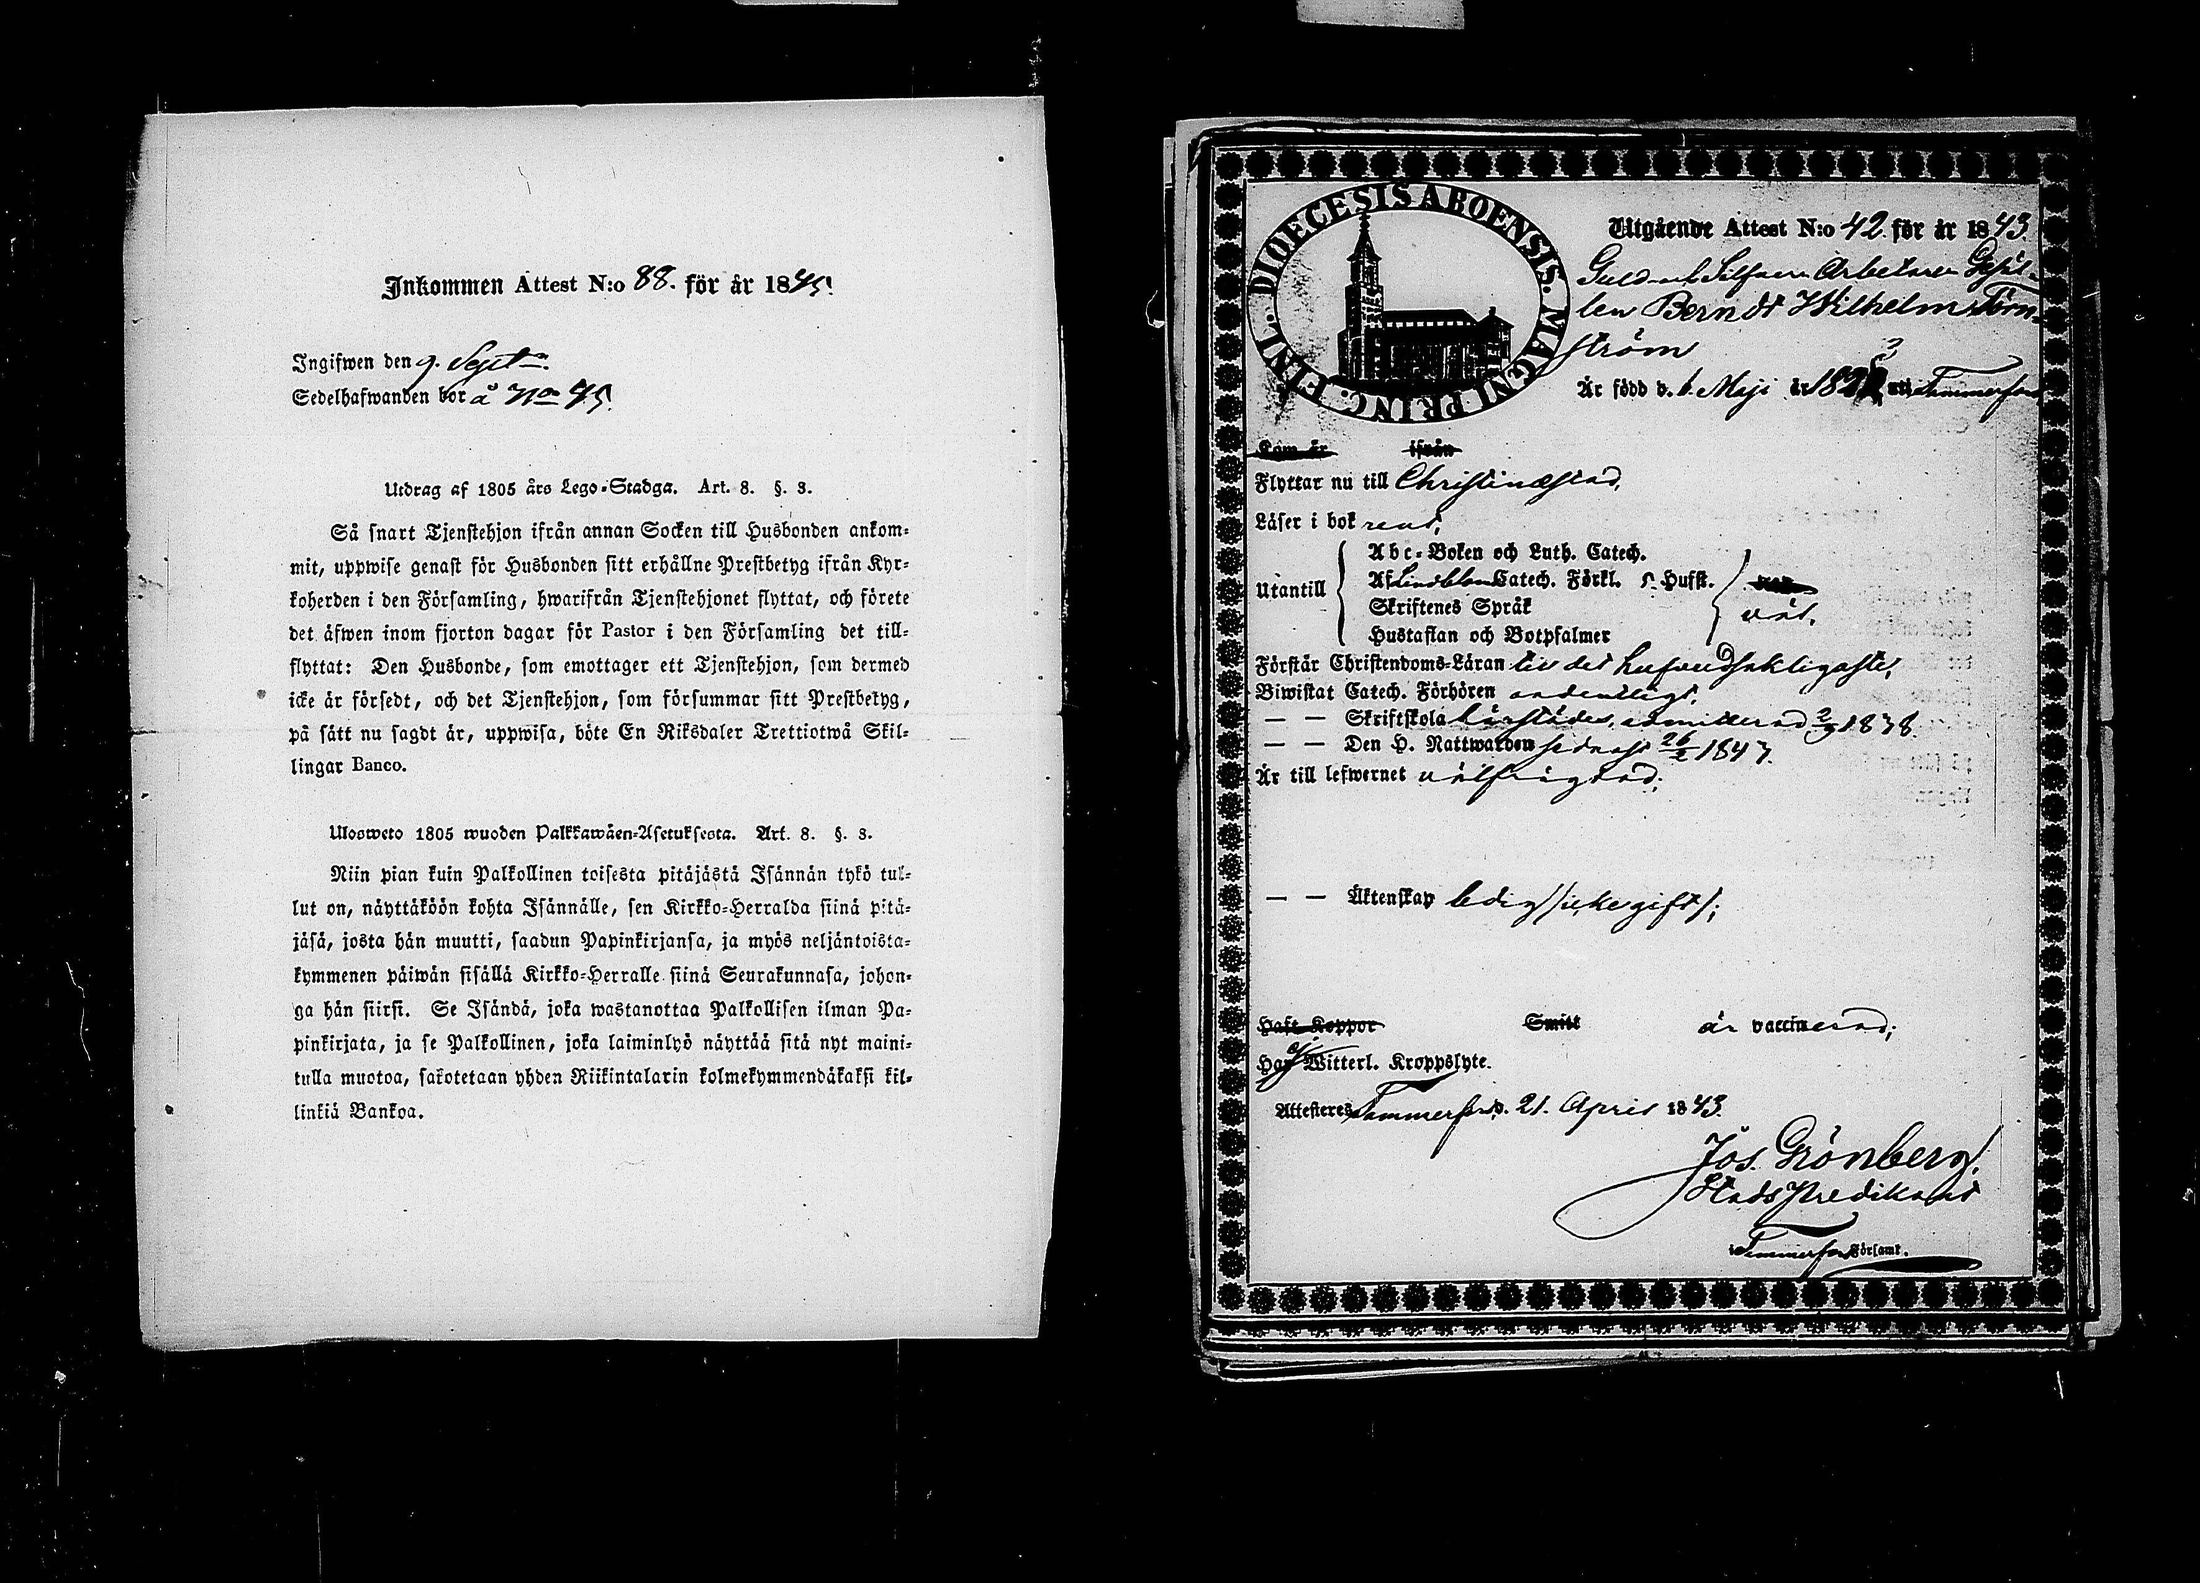 Inkommen Attest N:o 88. för år 1845.
Ingifwen den 9. Sept.
Sedelhafwanden bor å No 45.
Utdrag af 1805 års Lego-Stadga. Art. 8. §. 3.
Så snart Tjenstehjon ifrån annan Socken till Husbonden ankom-
mit, uppwise genast för Husbonden sitt erhållne Prestbetyg ifrån Kyr-
koherden i den Församling, hwarifrån Tjenstehjonet flyttat, och förete
det äfwen inom fjorton dagar för Pastor i den Församling det till-
flyttat: Den Husbonde, som emottager ett Tjenstehjon, som dermed
icke är försedt, och det Tjenstehjon, som försummar sitt Prestbetyg,
på sätt nu sagdt är, uppwisa, böte En Riksdaler Trettiotwå Skil-
lingar Banco.
Ulosweto 1805 wuoden Palkkawäen-Asetuksesta. Art. 8. §. 3.
Niin pian kuin Palkollinen toisesta pitäjästä Isännän tykö tul-
lut on, näyttäköön kohta Isännälle, sen Kirkko-Herralda siinä pitä-
jäsä, josta hän muutti, saadun Papinkirjansa, ja myös neljäntoista-
kymmenen päiwän sisällä Kirkko-Herralle siinä Seurakunnasa, johon-
ga hän siirsi. Se Isändä, joka wastanottaa Palkollisen ilman Pa-
pinkirjata, ja se Palkollinen, joka laiminlyö näyttää sitä nyt maini-
tulla muotoa, sakotetaan yhden Riikintalarin kolmekymmendäkaksi kil-
linkiä Bankoa.
DIOECESIS ABOENSIS. MAGNI PRINC. FINL.
Utgående Attest N:o 42 för år 1843
Guld- och Silfver Arbetare Gesäl-
len Berndt Wilhelm Törn-
ström
Är född d. 6. Maji år 1823 uti Tammerfors
Kom år ifrån
Flyttar nu till Christinæstad,
Läser i bok rent,
Utantill
Abc-Boken och Luth. Catech.
Af Lindbloms Catech. Förkl. s. Hufst.
Skriftenes Språk
Hustaflan och Botpsalmer
väl.
Förstår Christendoms-Läran till det hufvudsakligaste,
Biwistat Catech. Förhören ordentligt,
— — Skriftskola härstädes, admitterad 1838.
— — Den H. Nattwarden sednast 26/2 1843.
Är till lefwernet välfrägdad;
— — Äktenskap ledig /:icke gift:/;
Haft Koppor Smitt är vaccinerad;
Har ej Witterl. Kroppslyte.
Attesteres Tammerfors d. 21. April 1843.
Jos. Grönberg.
Stads Predikant
i Tammerfors Församl.